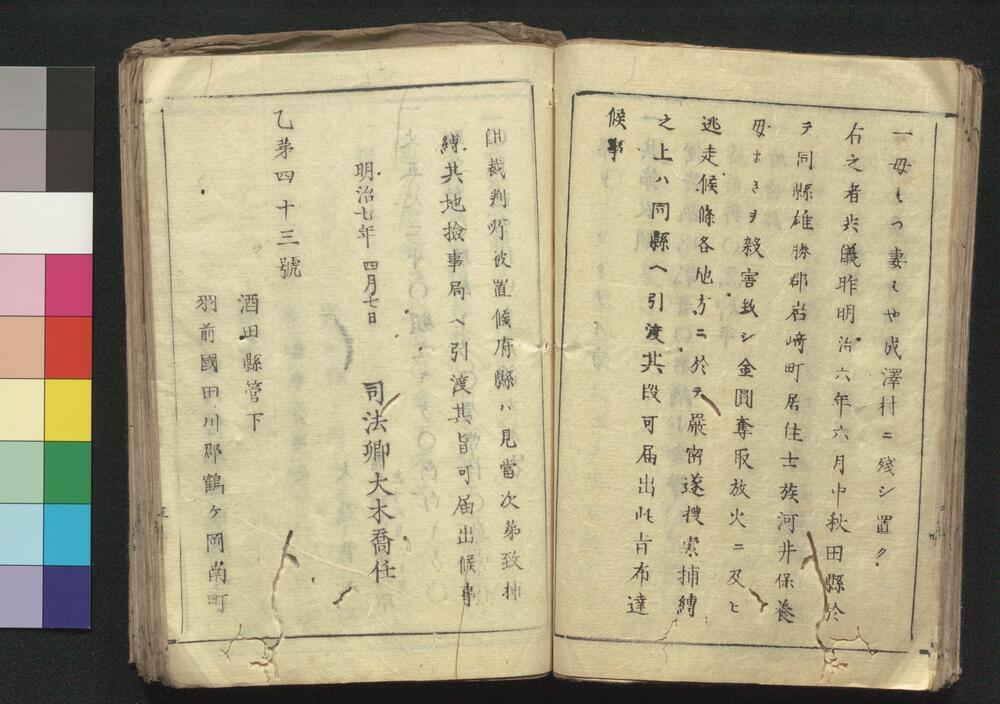 一母もつ妻もや成澤村ニ殘シ置ク
右之者共儀昨明治六年六月中秋田縣於
ヲ同縣雄勝郡岩﨑町居住士族河井保養
母まきヲ殺害致シ金圓奪取放火ニ及ヒ
逃走候條各地方ニ於テ嚴密遂捜索捕縛
之上ハ同縣ヘ引渡其段可届出此旨布達
候事
但裁判所被置候府縣ハ見當次第致捕
縛其地撿事局ヘ引渡其旨可届出候事
明治七年四月七日
司法卿大木喬任
乙苐四十三號
酒田縣管下
羽前國田川郡鶴ヶ岡南町
五